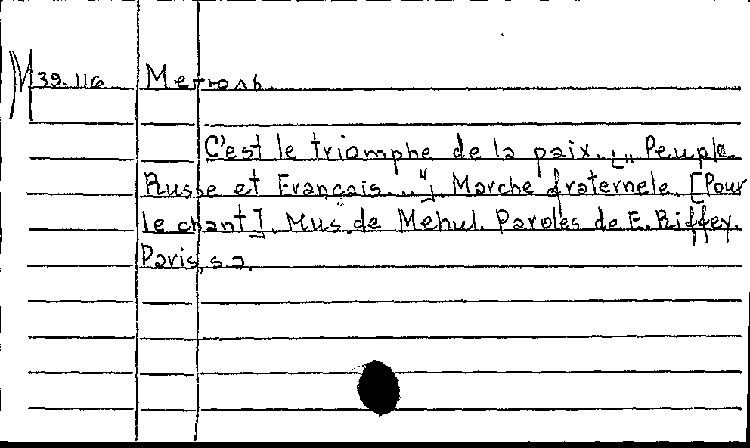 M 39.116 Metronb.
C'est le triomphe de la paix. [„Peuple
Russe et Français..."] Marche fraternele. [Pour
le chant]. Mus. de Mehul. Paroles de E. Riffey.
Paris, s.a.